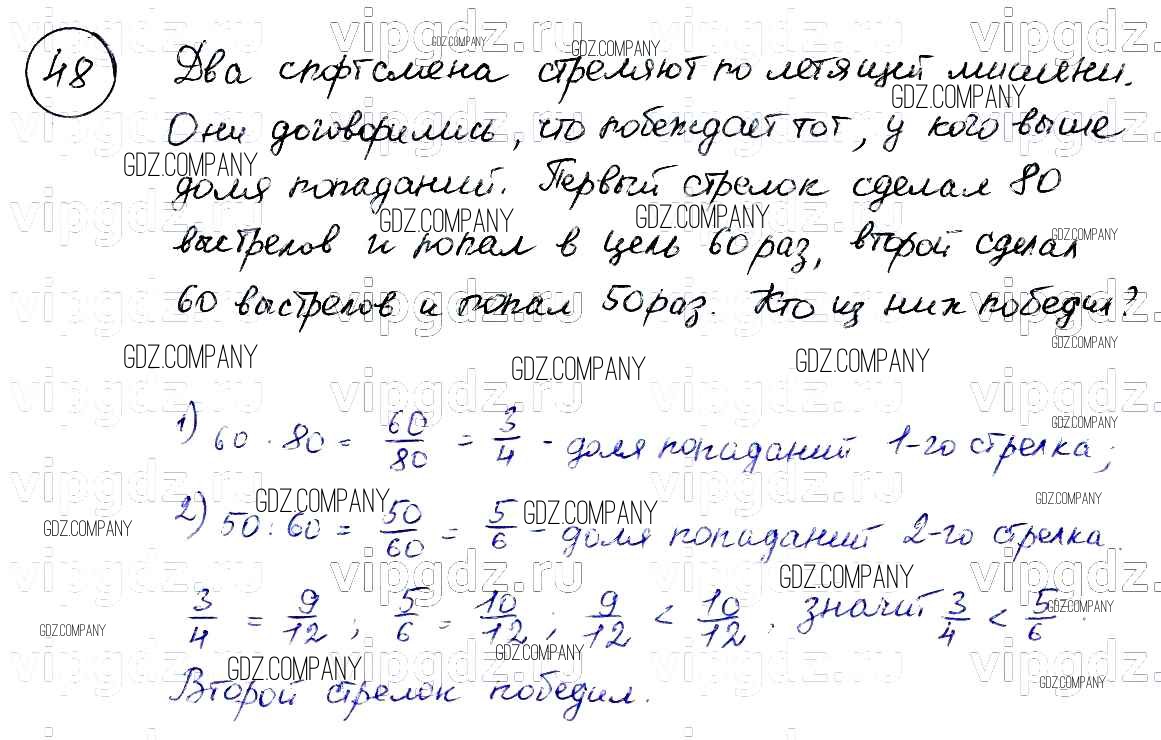 48 Два спортсмена стреляют по летящей мишени.
Они договорились, что побеждает тот, у кого выше
доля попаданий. Первый стрелок сделал 80
выстрелов и попал в цель 60 раз, второй сделал
60 выстрелов и попал 50 раз. Кто из них победил?
1) 60 · 80 = 60/80 = 3/4 - доля попаданий 1-го стрелка;
2) 50 : 60 = 50/60 = 5/6 - доля попаданий 2-го стрелка.
3/4 = 9/12; 5/6 = 10/12; 9/12 < 10/12. значит 3/4 < 5/6.
Второй стрелок победил.